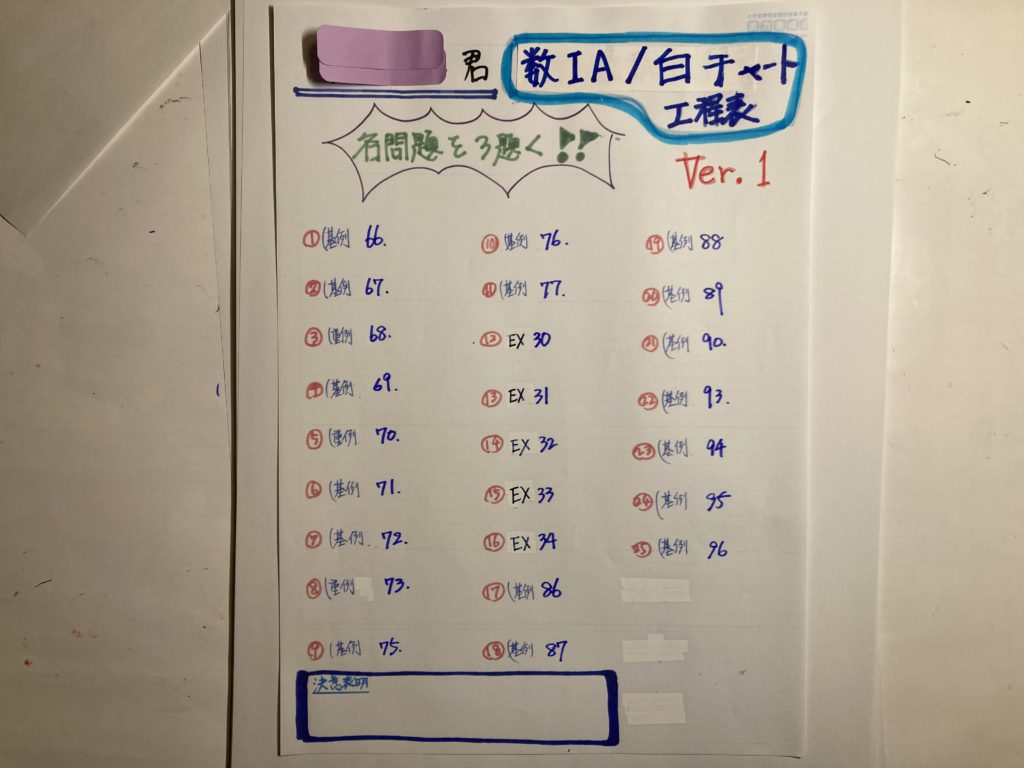 君
数IA/白チャート
工程表
各問題を3聴く!!
Ver. 1
① (基例 66.
② (基例 67.
③ (重例 68.
④ (基例 69.
⑤ (重例 70.
⑥ (基例 71.
⑦ (基例 72.
⑧ (重例 73.
⑨ (基例 75.
⑩ (基例 76.
⑪ (基例 77.
⑫ EX 30
⑬ EX 31
⑭ EX 32
⑮ EX 33
⑯ EX 34
⑰ (基例 86
⑱ (基例 87
⑲ (基例 88
⑳ (基例 89
㉑ (基例 90.
㉒ (基例 93.
㉓ (基例 94
㉔ (基例 95
㉕ (基例 96
決意表明